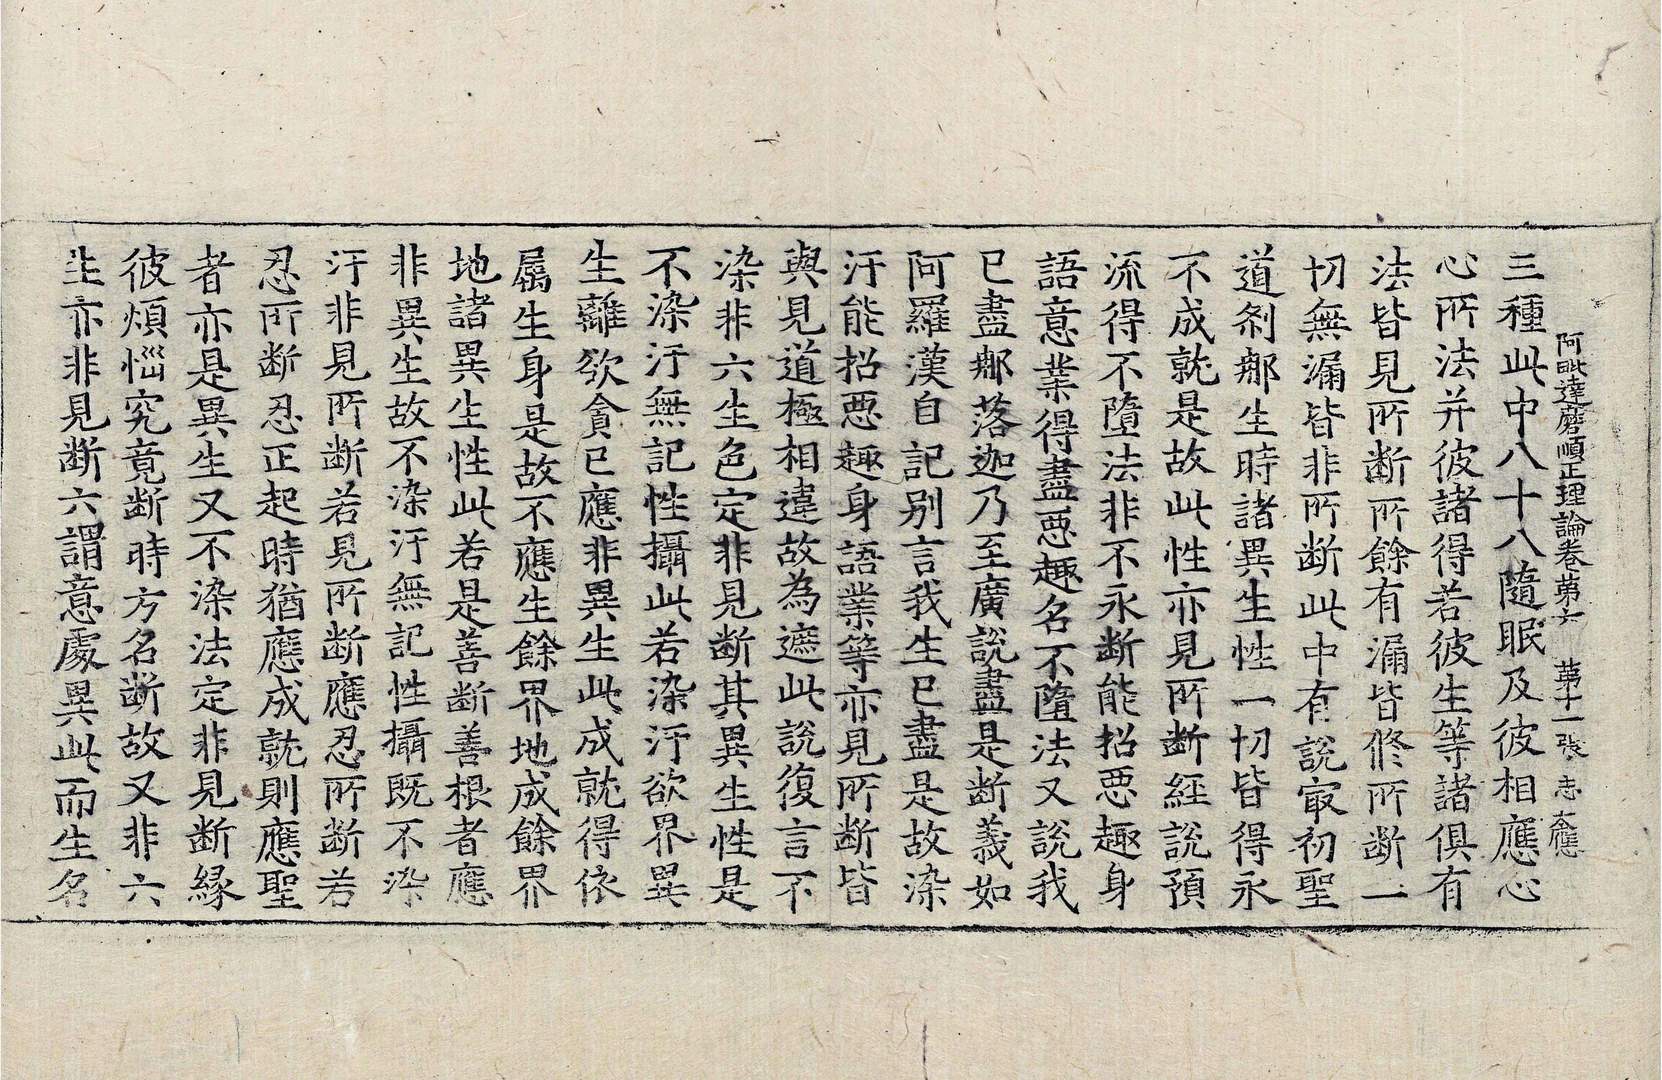 阿毗達磨順正理論卷第六　第十一張　志　應
三種此中八十八隨眠及彼相應心
心所法并彼諸得若彼生等諸俱有
法皆見所斷所餘有漏皆脩所斷一
切無漏皆非所斷此中有說㝡初聖
道刹那生時諸異生性一切皆得永
不成就是故此性亦見所斷經說預
流得不墮法非不永斷能招惡趣身
語意業得盡惡趣名不墮法又說我
已盡那落迦乃至廣說盡是斷義如
阿羅漢自記別言我生已盡是故染
汙能招惡趣身語業等亦見所斷皆
與見道極相違故為遮此說復言不
染非六生色定非見斷其異生性是
不染汙無記性攝此若染汙欲界異
生離欲貪已應非異生此成就得依
屬生身是故不應生餘界地成餘界
地諸異生性此若是善斷善根者應
非異生故不染汙無記性攝旣不染
汙非見所斷若見所斷應忍所斷若
忍所斷忍正起時猶應成就則應聖
者亦是異生又不染法定非見斷緣
彼煩惱究竟斷時方名斷故又非六
生亦非見斷六謂意處異此而生名